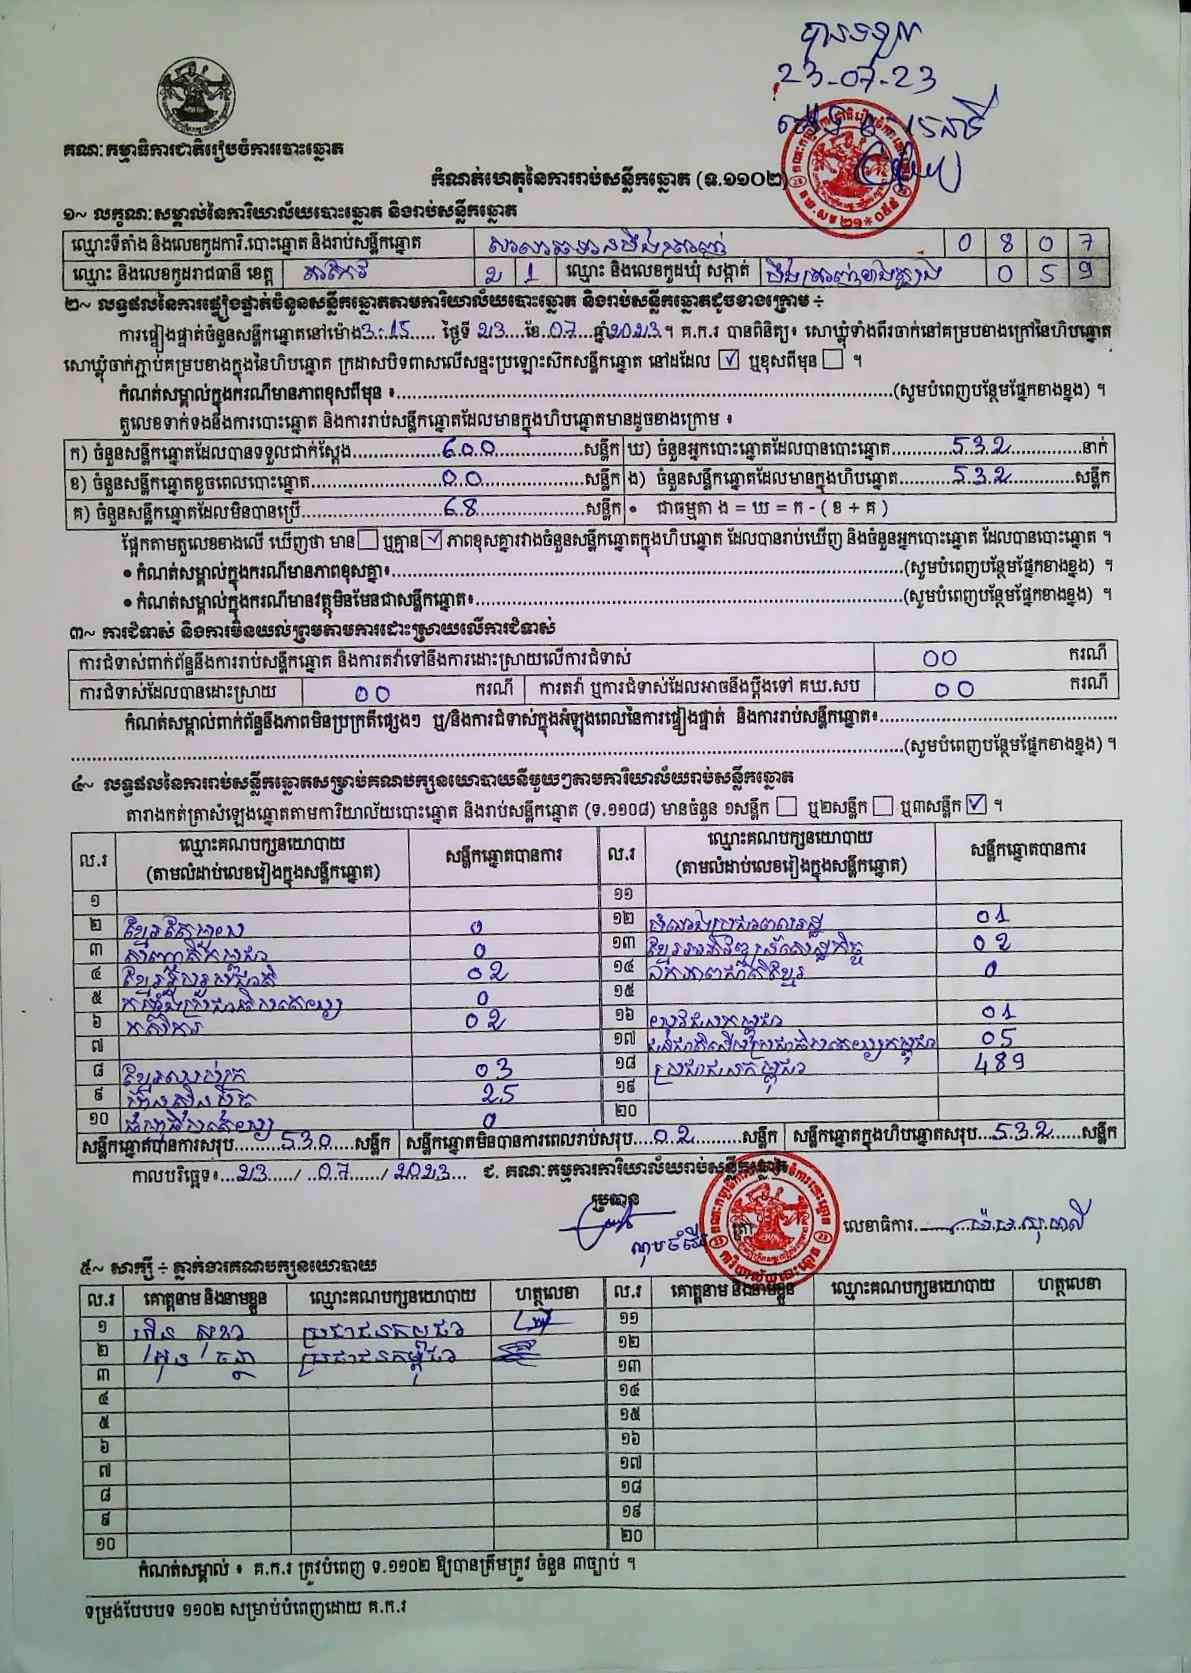 បានទទួល
23-07-23
គណៈកម្មាធិការជាតិរៀបចំការបោះឆ្នោត
កំណត់ហេតុនៃការរាប់សន្លឹកឆ្នោត (ទ.១១០២)
១~ លក្ខណៈសម្គាល់នៃការិយាល័យបោះឆ្នោត និងរាប់សន្លឹកឆ្នោត
ឈ្មោះទីតាំង និងលេខកូដការិ.បោះឆ្នោត និងរាប់សន្លឹកឆ្នោត 0 8 0 7
ឈ្មោះ និងលេខកូដរាជធានី ខេត្ត តាកែវ 2 1 ឈ្មោះ និងលេខកូដឃុំ សង្កាត់ 0 5 9
២~ លទ្ធផលនៃការផ្ទៀងផ្ទាត់ចំនួនសន្លឹកឆ្នោតតាមការិយាល័យបោះឆ្នោត និងរាប់សន្លឹកឆ្នោតដូចខាងក្រោម ÷
ការផ្ទៀងផ្ទាត់ចំនួនសន្លឹកឆ្នោតនៅម៉ោង 3:15 ថ្ងៃទី 23 ខែ 07 ឆ្នាំ 2023 ។ គ.ក.រ បានពិនិត្យ៖ សោឃ្លុំទាំងពីរចាក់នៅគម្របខាងក្រៅនៃហិបឆ្នោត
សោឃ្លុំចាក់ភ្ជាប់គម្របខាងក្នុងនៃហិបឆ្នោត ក្រដាសបិទពាសលើសន្ទះប្រឡោះស៊កសន្លឹកឆ្នោត នៅដដែល ☑ ឬខុសពីមុន ☐ ។
កំណត់សម្គាល់ក្នុងករណីមានភាពខុសពីមុន ៖ (សូមបំពេញបន្ថែមផ្នែកខាងខ្នង) ។
តួលេខទាក់ទងនឹងការបោះឆ្នោត និងការរាប់សន្លឹកឆ្នោតដែលមានក្នុងហិបឆ្នោតមានដូចខាងក្រោម ៖
ក) ចំនួនសន្លឹកឆ្នោតដែលបានទទួលជាក់ស្តែង 600 សន្លឹក ឃ) ចំនួនអ្នកបោះឆ្នោតដែលបានបោះឆ្នោត 532 នាក់
ខ) ចំនួនសន្លឹកឆ្នោតខូចពេលបោះឆ្នោត 00 សន្លឹក ង) ចំនួនសន្លឹកឆ្នោតដែលមានក្នុងហិបឆ្នោត 532 សន្លឹក
គ) ចំនួនសន្លឹកឆ្នោតដែលមិនបានប្រើ 68 សន្លឹក • ជាធម្មតា ង = ឃ = ក - ( ខ + គ )
ផ្អែកតាមតួលេខខាងលើ ឃើញថា មាន ☐ ឬគ្មាន ☑ ភាពខុសគ្នារវាងចំនួនសន្លឹកឆ្នោតក្នុងហិបឆ្នោត ដែលបានរាប់ឃើញ និងចំនួនអ្នកបោះឆ្នោត ដែលបានបោះឆ្នោត ។
• កំណត់សម្គាល់ក្នុងករណីមានភាពខុសគ្នា៖ (សូមបំពេញបន្ថែមផ្នែកខាងខ្នង) ។
• កំណត់សម្គាល់ក្នុងករណីមានវត្ថុមិនមែនជាសន្លឹកឆ្នោត៖ (សូមបំពេញបន្ថែមផ្នែកខាងខ្នង) ។
៣~ ការជំទាស់ និងការមិនយល់ព្រមតាមការដោះស្រាយលើការជំទាស់
ការជំទាស់ពាក់ព័ន្ធនឹងការរាប់សន្លឹកឆ្នោត និងការតវ៉ាទៅនឹងការដោះស្រាយលើការជំទាស់ 00 ករណី
ការជំទាស់ដែលបានដោះស្រាយ 00 ករណី ការតវ៉ា ឬការជំទាស់ដែលអាចនឹងប្តឹងទៅ គឃ.សប 00 ករណី
កំណត់សម្គាល់ពាក់ព័ន្ធនឹងភាពមិនប្រក្រតីផ្សេងៗ ឬ/និងការជំទាស់ក្នុងអំឡុងពេលនៃការផ្ទៀងផ្ទាត់ និងការរាប់សន្លឹកឆ្នោត៖
(សូមបំពេញបន្ថែមផ្នែកខាងខ្នង) ។
៤~ លទ្ធផលនៃការរាប់សន្លឹកឆ្នោតសម្រាប់គណបក្សនយោបាយនីមួយៗតាមការិយាល័យរាប់សន្លឹកឆ្នោត
តារាងកត់ត្រាសំឡេងឆ្នោតតាមការិយាល័យបោះឆ្នោត និងរាប់សន្លឹកឆ្នោត (ទ.១១០៨) មានចំនួន ១សន្លឹក ☐ ឬ២សន្លឹក ☐ ឬ៣សន្លឹក ☑ ។
ល.រ ឈ្មោះគណបក្សនយោបាយ (តាមលំដាប់លេខរៀងក្នុងសន្លឹកឆ្នោត) សន្លឹកឆ្នោតបានការ ល.រ ឈ្មោះគណបក្សនយោបាយ (តាមលំដាប់លេខរៀងក្នុងសន្លឹកឆ្នោត) សន្លឹកឆ្នោតបានការ
១ ១១
២ ខ្មែរតែមួយ 0 ១២ 01
៣ សញ្ជាតិកម្ពុជា 0 ១៣ ខ្មែរអភិវឌ្ឍន៍សេដ្ឋកិច្ច 02
៤ ខ្មែររួបរួមជាតិ 02 ១៤ ឯកភាពជាតិខ្មែរ 0
៥ 0 ១៥
៦ កសិករ 02 ១៦ យុវជនកម្ពុជា 01
៧ ១៧ ជនជាតិដើមប្រជាធិបតេយ្យកម្ពុជា 05
៨ ខ្មែរឈប់ក្រ 03 ១៨ ប្រជាជនកម្ពុជា 489
៩ ហ៊្វុនស៊ិនប៉ិច 25 ១៩
១០ 0 ២០
សន្លឹកឆ្នោតបានការសរុប 530 សន្លឹក សន្លឹកឆ្នោតមិនបានការពេលរាប់សរុប 02 សន្លឹក សន្លឹកឆ្នោតក្នុងហិបឆ្នោតសរុប 532 សន្លឹក
កាលបរិច្ឆេទ៖ 23 / 07 / 2023 ជ. គណៈកម្មការការិយាល័យរាប់សន្លឹកឆ្នោត
ប្រធាន
ត្រា លេខាធិការ
៥~ សាក្សី ÷ ភ្នាក់ងារគណបក្សនយោបាយ
ល.រ គោត្តនាម និងនាមខ្លួន ឈ្មោះគណបក្សនយោបាយ ហត្ថលេខា ល.រ គោត្តនាម និងនាមខ្លួន ឈ្មោះគណបក្សនយោបាយ ហត្ថលេខា
១ ប្រជាជនកម្ពុជា ១១
២ ប្រជាជនកម្ពុជា ១២
៣ ១៣
៤ ១៤
៥ ១៥
៦ ១៦
៧ ១៧
៨ ១៨
៩ ១៩
១០ ២០
កំណត់សម្គាល់ ៖ គ.ក.រ ត្រូវបំពេញ ទ.១១០២ ឱ្យបានត្រឹមត្រូវ ចំនួន ៣ច្បាប់ ។
ទម្រង់បែបបទ ១១០២ សម្រាប់បំពេញដោយ គ.ក.រ